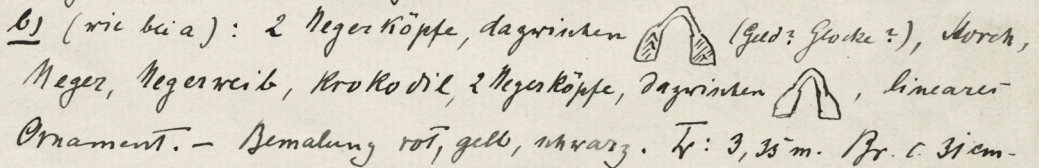 b) (wie bei a): 2 Negerköpfe, dazwischen (Geld? Glocke?), Storch,
Neger, Negerweib, Krokodil, 2 Negerköpfe, dazwischen , lineares
Ornament. – Bemalung rot, gelb, schwarz. Lr: 3,35 m. Br. c. 31 cm.